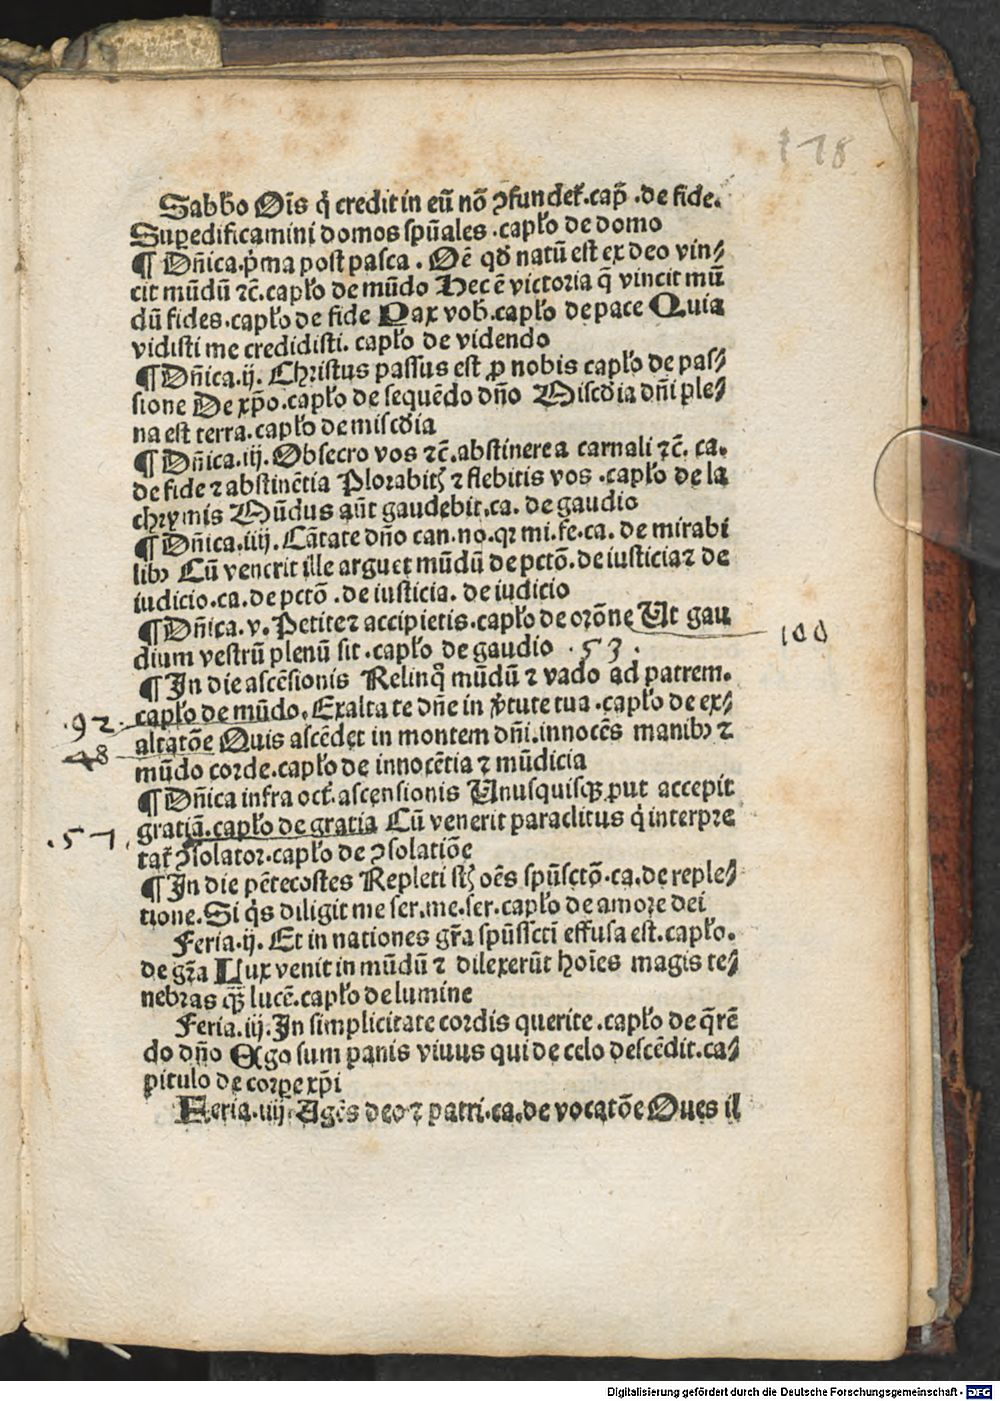 178
Sabb̃o Oĩs q̇ credit in eũ nõ ꝯfundet᷑.cap̃.de fide.
Suꝑedificamini domos spũales.cap̃lo de domo
¶ Dñica.p̃ma post pasca. Oẽ qđ natũ est ex deo vin⸗
cit mũdũ ⁊c̃.cap̃lo de mũdo Hec ẽ victoria q̃ vincit mũ
dũ fides.cap̃lo de fide Pax vob̃.cap̃lo de pace Quia
vidisti me credidisti. cap̃lo de videndo
¶ Dñica.ij. Christus passus est ꝓ nobis cap̃lo de pas⸗
sione De xp̃o.cap̃lo de sequẽdo dño Miscđia dñi ple⸗
na est terra.cap̃lo de miscđia
¶ Dñica.iij. Obsecro vos ⁊c̃.abstinere a carnali ⁊c̃. ca.
de fide ⁊ abstinẽtia Plorabitꝭ ⁊ flebitis vos.cap̃lo de la
chrymis Mũdus aũt gaudebit.ca. de gaudio
¶ Dñica.iiij. Cãtate dño can.no.qꝛ mi.fe.ca. de mirabi
libꝰ Cũ venerit ille arguet mũdũ de pctõ.de iusticia ⁊ de
iudicio.ca.de pctõ.de iusticia. de iudicio
¶ Dñica.v. Petite ⁊ accipietis.cap̃lo de orõne Ut gau
100
dium vestrũ plenũ sit.cap̃lo de gaudio .53.
¶ In die ascẽsionis Relinq̃ mũdũ ⁊ vado ad patrem.
.92. cap̃lo de mũdo. Exaltate dñe in ꝟtute tua.cap̃lo de ex⸗
48 altatõe Quis ascẽdet in montem dñi.innocẽs manibꝰ ⁊
mũdo corde.cap̃lo de innocẽtia ⁊ mũdicia
¶ Dñica infra oct̃.ascensionis Unusquisqꝫ put accepit
.57. gratiã.cap̃lo de gratia Cũ venerit paraclitus q̇ interpre
tat᷑ ꝯsolator.cap̃lo de ꝯsolatiõe
¶ In die pẽtecostes Repleti stꝭ oẽs spũsctõ.ca.de reple⸗
tione. Si q̇s diligit me ser.me.ser.cap̃lo de amore dei
Feria.ij. Et in nationes gr̃a spũssctĩ effusa est.cap̃lo.
de gr̃a Lux venit in mũdũ ⁊ dilexerũt hoĩes magis te⸗
nebras qꝫ̃ lucẽ.cap̃lo de lumine
Feria.iij. In simplicitate cordis querite.cap̃lo de q̃rẽ
do dño Ego sum panis vivus qui de celo descẽdit.ca⸗
pitulo de corꝑe xp̃i
Feria.iiij. Agẽs deo ⁊ patri.ca.de vocatõe Oues il
Digitalisierung gefördert durch die Deutsche Forschungsgemeinschaft - DFG